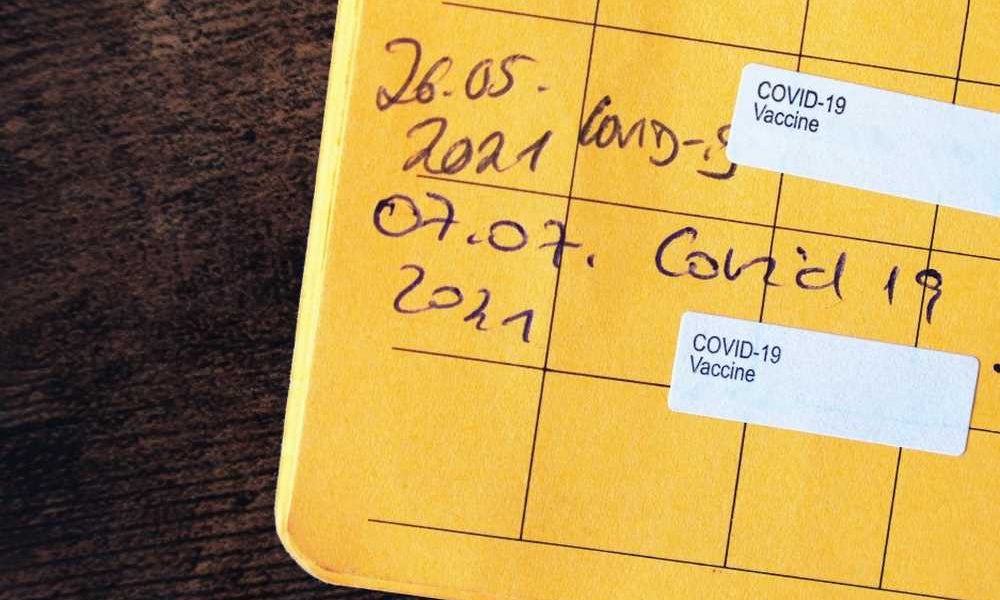 26.05.
2021 COVID-19
COVID-19
Vaccine
07.07. Covid 19
2021
COVID-19
Vaccine